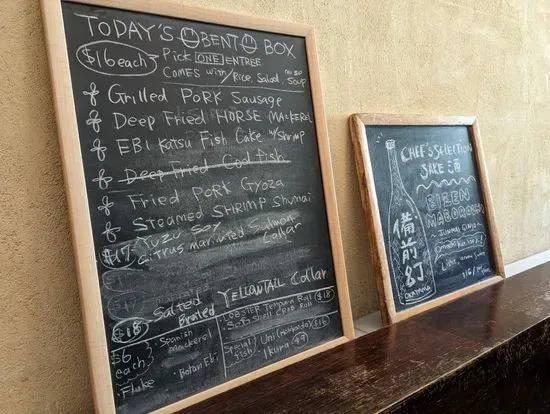 TODAY'S BENTO BOX
$16 each Pick ONE ENTREE
COMES with/Rice, Salad, miso SOUP
Grilled PORK Sausage
Deep Fried HORSE MACKEREL
EBI Katsu Fish Cake w/Shrimp
Deep Fried Cod fish
Fried PORK Gyoza
STEAMED SHRIMP Shumai
$17 YUZU SOY
Citrus marinated Salmon Collar
$18 Salted Broiled YELLOWTAIL Collar
LOBSTER Tempura Roll $18
Soft shell CRAB Roll
$6 each Spanish mackerel
Fluke
Botan Ebi
Special fish
Uni (Hokkaido) $16
Ikura $9
CHEF'S SELECTION
SAKE 酒
BIZEN
MABOROSHI
JUNMAI GINJO
備前幻
OKAYAMA